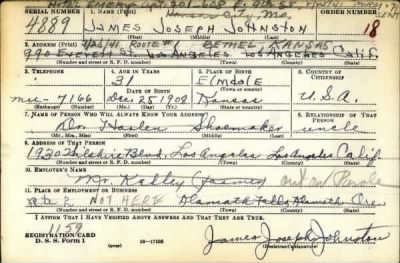 Kansas City, Mo.
SERIAL NUMBER 1. NAME (Print) ORDER NUMBER
4889 JAMES JOSEPH JOHNSTON 18
(First) (Middle) (Last)
2. ADDRESS (Print) ROUTE 1 BETHEL KANSAS
LOS ANGELES LOS ANGELES Calif.
(Number and street or R. F. D. number) (Town) (County) (State)
3. TELEPHONE 4. AGE IN YEARS 5. PLACE OF BIRTH 6. COUNTRY OF CITIZENSHIP
31 Elmdale
DATE OF BIRTH (Town or county)
Mu-7166 Dec 25 1908 Kansas U.S.A.
(Exchange) (Number) (Mo.) (Day) (Yr.) (State or country)
7. NAME OF PERSON WHO WILL ALWAYS KNOW YOUR ADDRESS 8. RELATIONSHIP OF THAT PERSON
Dr. Shoemaker uncle
(Mr., Mrs., Miss) (First) (Middle) (Last)
9. ADDRESS OF THAT PERSON
1930 Wilshire Blvd, Los Angeles Los Angeles Calif
(Number and street or R. F. D. number) (Town) (County) (State)
10. EMPLOYER'S NAME
Mr. Kelley
11. PLACE OF EMPLOYMENT OR BUSINESS
Rte 2 NOT HERE Klamath Falls Klamath Ore
(Number and street or R. F. D. number) (Town) (County) (State)
I AFFIRM THAT I HAVE VERIFIED ABOVE ANSWERS AND THAT THEY ARE TRUE.
1159
REGISTRATION CARD
D. S. S. Form 1 16—17105 James Joseph Johnston
(Registrant's signature)